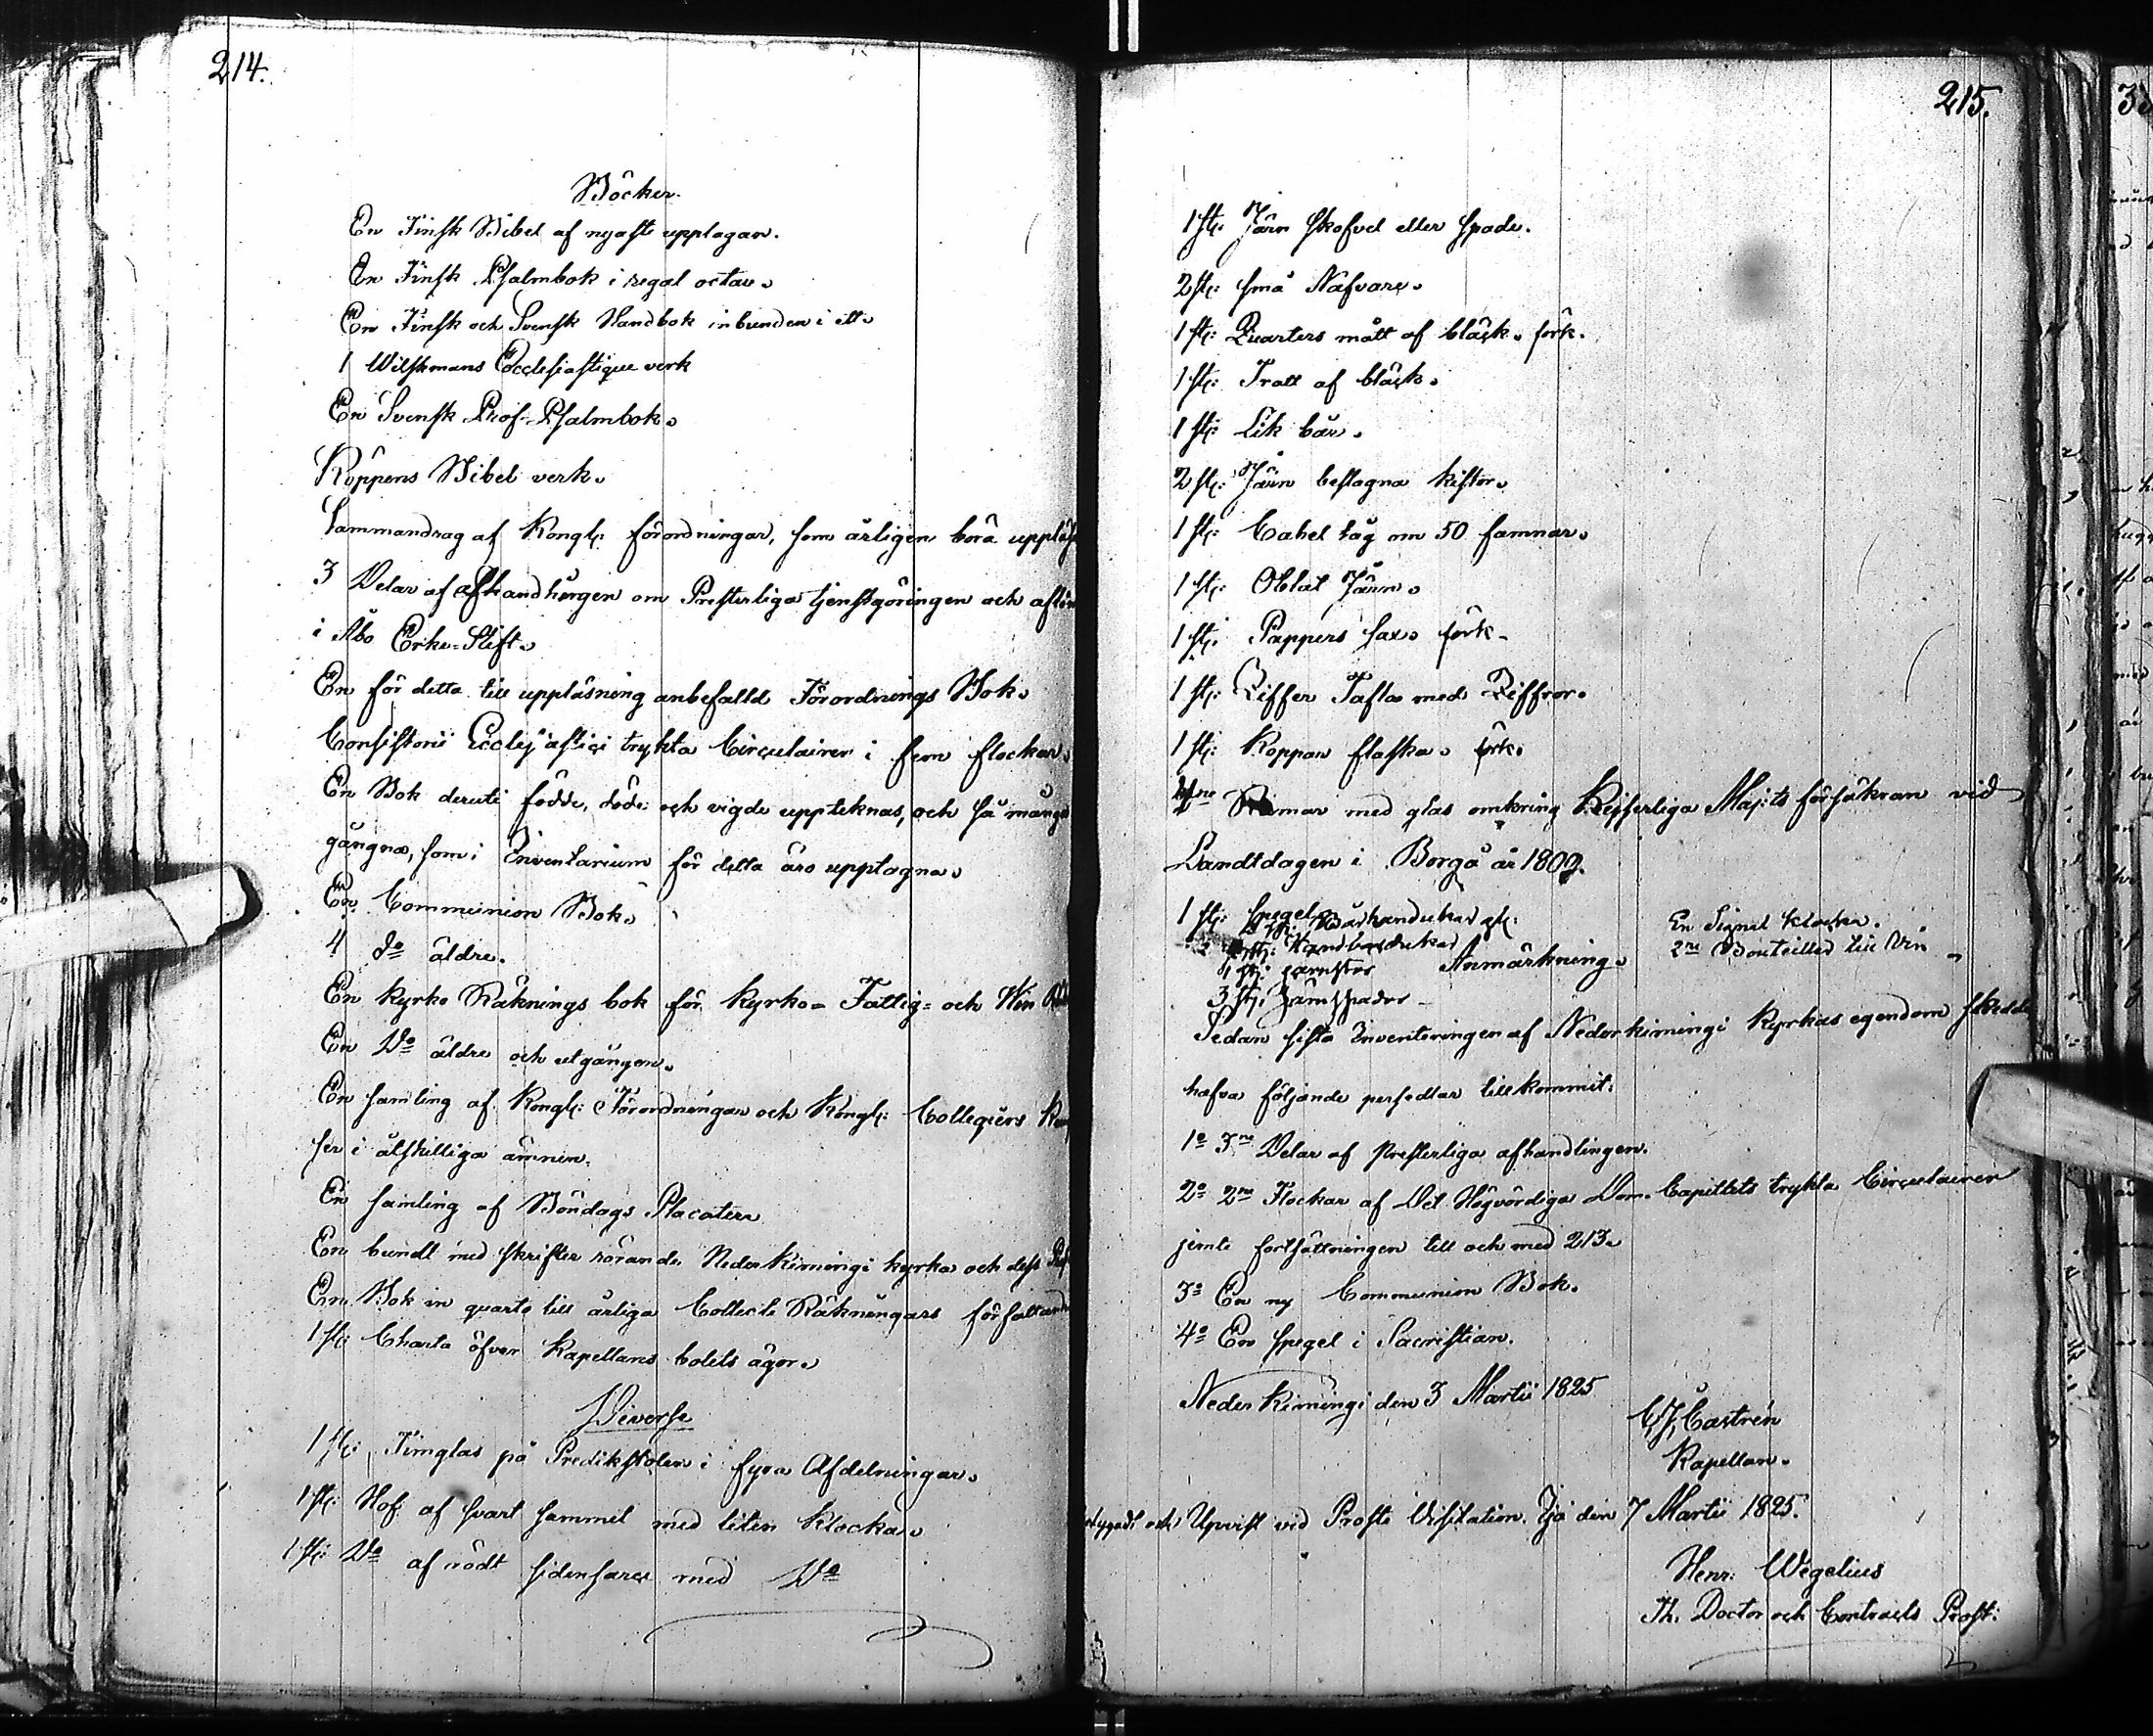 214.
Böcker.
En Finsk Bibel af nyaste upplagan.
En Finsk Psalmbok i regal octav.
En Finsk och Svensk Handbok inbunden i ett.
1 Wilskmans Ecclesiastique verk
En Svensk Prof-Psalmbok.
Köppens Bibel verk.
Sammandrag af Kongl: förordningar, som årligen böra uppläs
3 Delar af afhandlingen om Presterliga tjenstgöringen och aflön
i Åbo Erke-Stift.
En för detta till uppläsning anbefalld Förordnings Bok.
Consistorii Ecclesiastici trykta Circulairer i fem flockar.
En Bok deruti födde, döde och vigde uppteknas, och så många
gångna, som i Inventarium för detta äro upptagna.
En Communion Bok.
4 do äldre.
En kyrko Räknings bok för kyrko- Fattig- och Vin
En Do äldre och utgången.
En samling af Kongl: Förordningar och Kongl: Collegiers
ser i åtskilliga ämnen.
En samling af Böndags Placater
En bundt med skrifter rörande Nederkiminge kyrka och dess
En Bok in quarto till årliga Collecte Räkningars författande
1 st: Charta öfver Kapellans bolets ägor.
Diverse
1 st: Timglas på Predikstolen i fyra Afdelningar.
1 st: Hof af svart sammet med liten klocka.
1 st: Do af rödt sidensars med Do
215.
1 st: Järn skofvel eller spade.
2 st: små Nafvare.
1 st: Quarters mått af bläck. förk.
1 st: Tratt af bläck.
1 st: Lik bår.
2 st: Järn beslagna kistor.
1 st: Cabel tåg om 50 famnar.
1 st: Oblat Järn.
1 st: Pappers sax. förk.
1 st: Ziffer Tafla med Ziffror.
1 st: Koppar flaska. förk.
Ramar med glas omkring Kejserliga Maj:ts försäkran vid
Landtdagen i Borgå år 1809.
1 st: spegel
En Signal klocka.
2ne Bouteiller till Vin
Anmärkning.
3 st: Järnspador
Sedan sista Inventeringen af Nederkiminge Kyrkas egendom skedde
hafva följande persedlar tillkommit:
1o 3ne Delar af Presterliga afhandlingen.
2o 2ne Flockar af Det Högvördiga Dom-Capitlets trykta Circulairer
jemte fortsättningen till och med 213.
3o En ny Communion Bok.
4o En spegel i Sacristian.
Neder Kiminge den 3 Martii 1825
C. J. Castrén
Kapellan.
och Upvist vid Prosts Visitation. Ijo den 7 Martii 1825.
Henr: Wegelius
Th. Doctor och Contracts Prost: